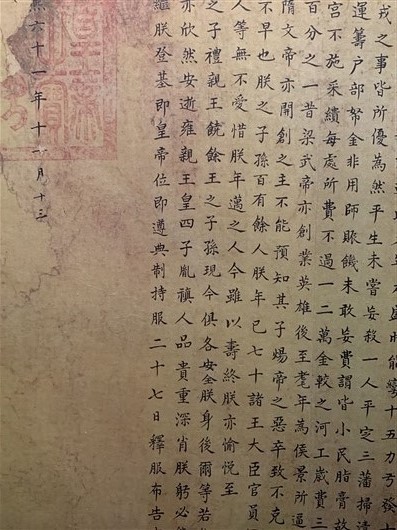 盛時能彎十五力弓發十
戎之事皆所優為然平生未嘗妄殺一人平定三藩掃清
運籌戶部帑金非用師賑饑未敢妄費謂皆小民脂膏故
宮不施采繢每處所費不過一二萬金較之河工歲費三
百分之一昔梁武帝亦創業英雄後至耄年為侯景所逼
隋文帝亦開創之主不能預知其子煬帝之惡卒致不克
不早也朕之子孫百有餘人朕年已七十諸王大臣官員
人等無不愛惜朕年邁之人今雖以壽終朕亦愉悅至
之子禮親王饒餘王之子孫現今俱各安全朕身後爾等若
亦欣然安逝雍親王皇四子胤禛人品貴重深肖朕躬必
繼朕登基即皇帝位即遵典制持服二十七日釋服布告
熙六十一年十一月十三